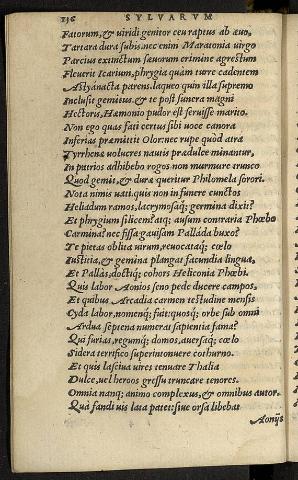 136 SYLVARVM
Fatorum, & uiridi genitor ceu raptus ab æuo,
Tartara dura subis. nec enim Maratonia uirgo
Parcius extinctum sæuorum crimine agrestum
Fleuerit Icarium, phrygia quàm turre cadentem
Astyanacta parens. laqueo quin illa supremo
Inclusit gemitus. & te post funera magni
Hectoris, Hæmonio pudor est seruisse marito.
Non ego quas fati certus sibi uoce canora
Inferias præmittit Olor: nec rupe quòd atra
Tyrrhenæ uolucres nautis prædulce minantur,
In patrios adhibebo rogos. non murmure trunco
Quod gemit, & duræ queritur Philomela sorori.
Nota nimis uati. quis non in funere cunctos
Heliadum ramos, lacrymosaq; germina dixit?
Et phrygium silicem? atq; ausum contraria Phœbo
Carmina? nec fissa gauisam Pallada buxo?
Te pietas oblita uirum, reuocataq; cœlo
Iustitia, & gemina plangat facundia lingua,
Et Pallas, doctiq; cohors Heliconia Phœbi.
Quis labor Aonios seno pede ducere campos,
Et quibus Arcadia carmen testudine mensis
Cyda labor, nomenq; fuit: quosq; orbe sub omni
Ardua septena numerat sapientia fama?
Qui furias, regumq; domos, auersaq; cœlo
Sidera terrifico superintonuere cothurno.
Et quis lasciua uires tenuare Thalia
Dulce, uel heroos gressu truncare tenores.
Omnia nanq; animo complexus, & omnibus autor.
Quà fandi uis lata patet: siue orsa libebat
Aonijs